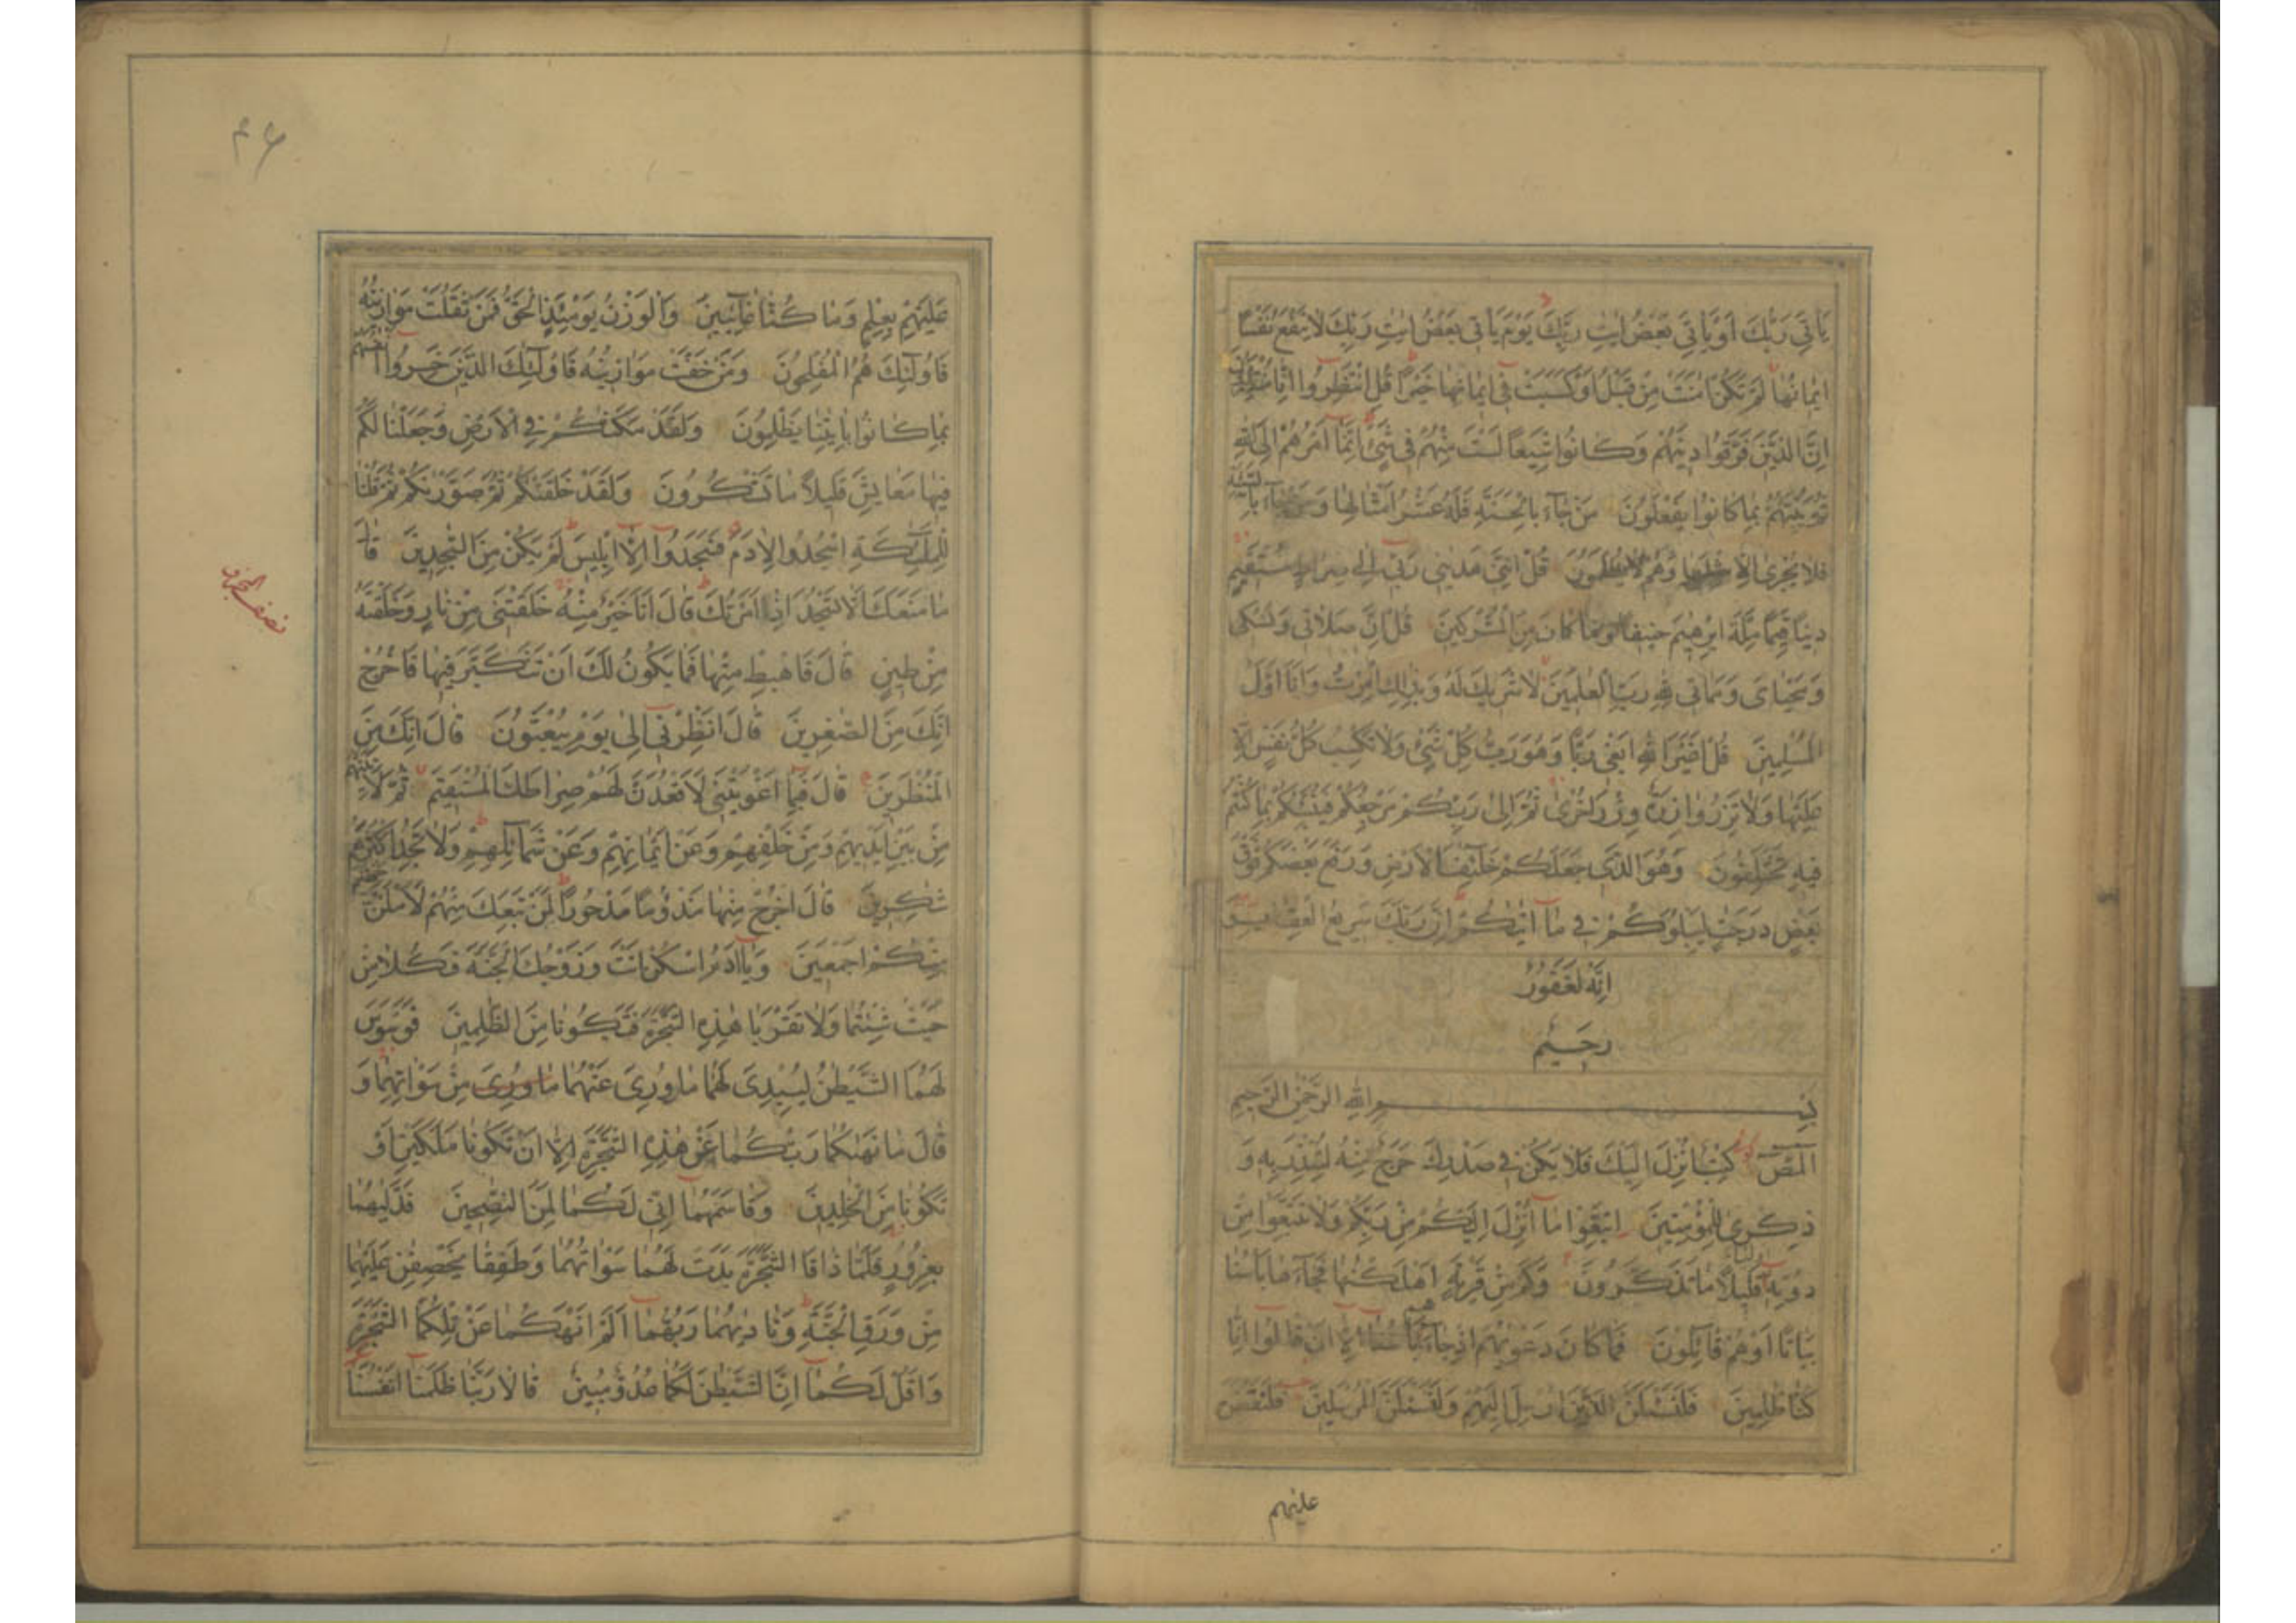 يَأتِيَ رَبُّكَ اَوْيَأتِيَ بَعْضُ ايٰتِ رَبِّكَ يَوْمَ يَأتى بَعْضُ ايٰتِ رَبِّكَ لاٰ يَنْفَعُ نَفْسًا
ايمٰانُهٰا لَمْ تَكُنْ امَنَتْ مِنْ قَبْلُ اَوْكَسَبَتْ فى ايمٰانِهٰا خَيْرًا قُلِ انْتَظِرُوا اِنّٰا مُنْتَظِرُونَ
اِنَّ الَّذينَ فَرَّقُوا دينَهُمْ وَكٰانُوا شِيَعًا لَسْتَ مِنْهُمْ فى شَيْئٍ اِنَّمٰا اَمْرُهُمْ اِلَى اللّٰهِ
يُنَبِّئُهُمْ بِمٰا كٰانُوا يَفْعَلُونَ مَنْ جٰاءَ بِالْحَسَنَةِ فَلَهُ عَشْرُ اَمْثٰالِهٰا وَمَنْ جٰاءَ بِالسَّيِّئَةِ
فَلاٰ يُجْزىٰ اِلاّٰ مِثْلَهٰا وَهُمْ لاٰ يُظْلَمُونَ قُلْ اِنَّنى هَدٰينى رَبّى اِلىٰ صِرٰاطٍ مُسْتَقيمٍ
دينًا قِيَمًا مِلَّةَ اِبْرٰهيمَ حَنيفًا وَمٰا كٰانَ مِنَ الْمُشْرِكينَ قُلْ اِنَّ صَلاٰتى وَنُسُكى
وَمَحْيٰاىَ وَمَمٰاتى لِلّٰهِ رَبِّ الْعٰلَمينَ لاٰ شَريكَ لَهُ وَبِذٰلِكَ اُمِرْتُ وَاَنَا اَوَّلُ
الْمُسْلِمينَ قُلْ اَغَيْرَ اللّٰهِ اَبْغى رَبًّا وَهُوَ رَبُّ كُلِّ شَيْئٍ وَلاٰ تَكْسِبُ كُلُّ نَفْسٍ اِلاّٰ
عَلَيْهٰا وَلاٰ تَزِرُ وٰازِرَةٌ وِزْرَ اُخْرىٰ ثُمَّ اِلىٰ رَبِّكُمْ مَرْجِعُكُمْ فَيُنَبِّئُكُمْ بِمٰا كُنْتُمْ
فيهِ تَخْتَلِفُونَ وَهُوَ الَّذى جَعَلَكُمْ خَلاٰئِفَ الْاَرْضِ وَرَفَعَ بَعْضَكُمْ فَوْقَ
بَعْضٍ دَرَجٰتٍ لِيَبْلُوَكُمْ فى مٰا اٰتٰيكُمْ اِنَّ رَبَّكَ سَريعُ الْعِقٰابِ وَ
اِنَّهُ لَغَفُورٌ
رَحيمٌ
بِسْمِ اللّٰهِ الرَّحْمٰنِ الرَّحيمِ
الٓمٓصٓ كِتٰابٌ اُنْزِلَ اِلَيْكَ فَلاٰ يَكُنْ فى صَدْرِكَ حَرَجٌ مِنْهُ لِتُنْذِرَ بِهِ وَ
ذِكْرىٰ لِلْمُؤْمِنينَ اِتَّبِعُوا مٰا اُنْزِلَ اِلَيْكُمْ مِنْ رَبِّكُمْ وَلاٰ تَتَّبِعُوا مِنْ
دُونِهِ اَوْلِيٰاءَ قَليلاً مٰا تَذَكَّرُونَ وَكَمْ مِنْ قَرْيَةٍ اَهْلَكْنٰاهٰا فَجٰاءَهٰا بَأسُنٰا
بَيٰاتًا اَوْهُمْ قٰائِلُونَ فَمٰا كٰانَ دَعْوٰيهُمْ اِذْ جٰاءَهُمْ بَأسُنٰا اِلاّٰ اَنْ قٰالُوا اِنّٰا
كُنّٰا ظٰلِمينَ فَلَنَسْئَلَنَّ الَّذينَ اُرْسِلَ اِلَيْهِمْ وَلَنَسْئَلَنَّ الْمُرْسَلينَ فَلَنَقُصَّنَّ
عليهم
۴۶
عَلَيْهِمْ بِعِلْمٍ وَمٰا كُنّٰا غٰائِبينَ وَالْوَزْنُ يَوْمَئِذٍ الْحَقُّ فَمَنْ ثَقُلَتْ مَوٰازينُهُ
فَاُولٰئِكَ هُمُ الْمُفْلِحُونَ وَمَنْ خَفَّتْ مَوٰازينُهُ فَاُولٰئِكَ الَّذينَ خَسِرُوا اَنْفُسَهُمْ
بِمٰا كٰانُوا بِاٰيٰتِنٰا يَظْلِمُونَ وَلَقَدْ مَكَّنّٰاكُمْ فِى الْاَرْضِ وَجَعَلْنٰا لَكُمْ
فيهٰا مَعٰايِشَ قَليلاً مٰا تَشْكُرُونَ وَلَقَدْ خَلَقْنٰكُمْ ثُمَّ صَوَّرْنٰكُمْ ثُمَّ قُلْنٰا
لِلْمَلٰئِكَةِ اسْجُدُوا لِاٰدَمَ فَسَجَدُوا اِلاّٰ اِبْليسَ لَمْ يَكُنْ مِنَ السّٰجِدينَ قٰالَ
مٰا مَنَعَكَ اَلاّٰ تَسْجُدَ اِذْ اَمَرْتُكَ قٰالَ اَنَا خَيْرٌ مِنْهُ خَلَقْتَنى مِنْ نٰارٍ وَخَلَقْتَهُ
مِنْ طينٍ قٰالَ فَاهْبِطْ مِنْهٰا فَمٰا يَكُونُ لَكَ اَنْ تَتَكَبَّرَ فيهٰا فَاخْرُجْ
اِنَّكَ مِنَ الصّٰغِرينَ قٰالَ اَنْظِرْنى اِلىٰ يَوْمِ يُبْعَثُونَ قٰالَ اِنَّكَ مِنَ
الْمُنْظَرينَ قٰالَ فَبِمٰا اَغْوَيْتَنى لَاَقْعُدَنَّ لَهُمْ صِرٰاطَكَ الْمُسْتَقيمَ ثُمَّ لَاٰتِيَنَّهُمْ
مِنْ بَيْنِ اَيْديهِمْ وَمِنْ خَلْفِهِمْ وَعَنْ اَيْمٰانِهِمْ وَعَنْ شَمٰائِلِهِمْ وَلاٰ تَجِدُ اَكْثَرَهُمْ
شٰكِرينَ قٰالَ اخْرُجْ مِنْهٰا مَذْؤُمًا مَدْحُورًا لَمَنْ تَبِعَكَ مِنْهُمْ لَاَمْلَئَنَّ
مِنْكُمْ اَجْمَعينَ وَيٰا اٰدَمُ اسْكُنْ اَنْتَ وَزَوْجُكَ الْجَنَّةَ فَكُلاٰ مِنْ
حَيْثُ شِئْتُمٰا وَلاٰ تَقْرَبٰا هٰذِهِ الشَّجَرَةَ فَتَكُونٰا مِنَ الظّٰلِمينَ فَوَسْوَسَ
لَهُمَا الشَّيْطٰنُ لِيُبْدِىَ لَهُمٰا مٰا وُرِىَ عَنْهُمٰا مٰا وُرِىَ مِنْ سَوْاٰتِهِمٰا وَ
قٰالَ مٰا نَهٰيكُمٰا رَبُّكُمٰا عَنْ هٰذِهِ الشَّجَرَةِ اِلاّٰ اَنْ تَكُونٰا مَلَكَيْنِ اَوْ
تَكُونٰا مِنَ الْخٰلِدينَ وَقٰاسَمَهُمٰا اِنّى لَكُمٰا لَمِنَ النّٰصِحينَ فَدَلّٰيهُمٰا
بِغُرُورٍ فَلَمّٰا ذٰاقَا الشَّجَرَةَ بَدَتْ لَهُمٰا سَوْاٰتُهُمٰا وَطَفِقٰا يَخْصِفٰنِ عَلَيْهِمٰا
مِنْ وَرَقِ الْجَنَّةِ وَنٰاديٰهُمٰا رَبُّهُمٰا اَلَمْ اَنْهَكُمٰا عَنْ تِلْكُمَا الشَّجَرَةِ
وَاَقُلْ لَكُمٰا اِنَّ الشَّيْطٰنَ لَكُمٰا عَدُوٌّ مُبينٌ قٰالاٰ رَبَّنٰا ظَلَمْنٰا اَنْفُسَنٰا